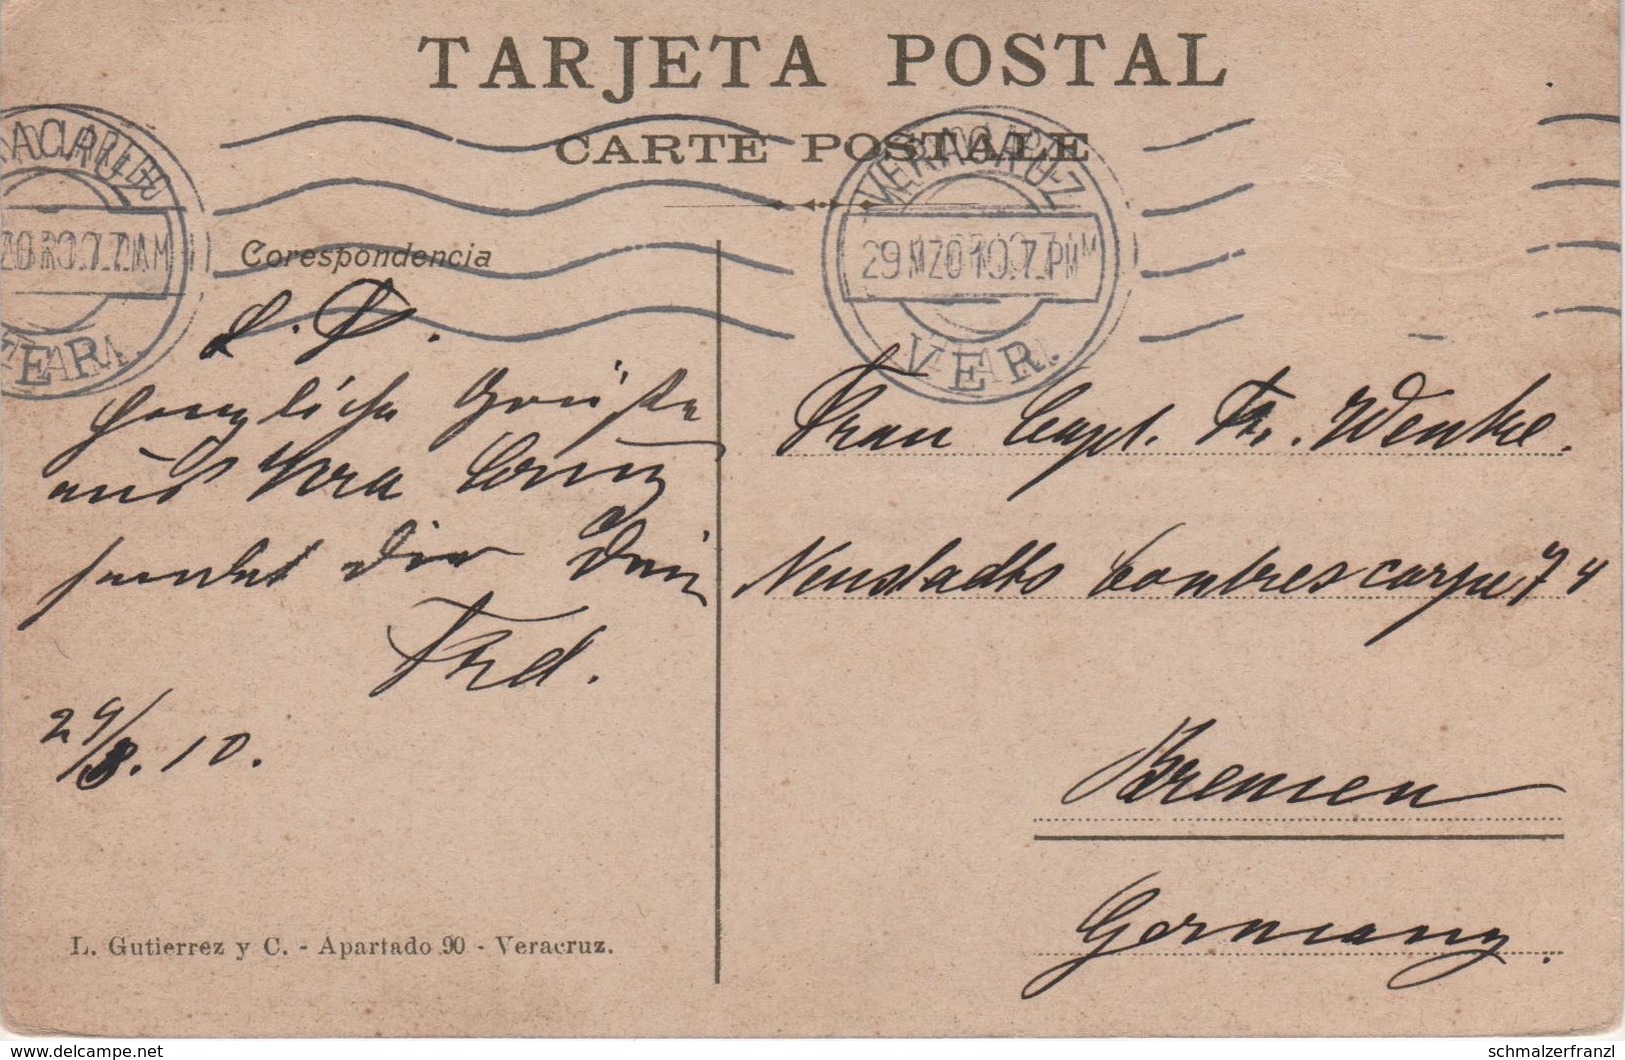 TARJETA POSTAL
CARTE POSTALE
VERACRUZ
29 MZO 10. 7 PM
VER.
Corespondencia
L. F.
herzliche Grüße
aus Vera Cruz
sendet dir dein
Frd.
29/3. 10.
Frau Capt. Th. Wenke.
Neustadts Contrescarpe 74
Bremen
Germany.
L. Gutierrez y C. - Apartado 90 - Veracruz.
www.delcampe.net
schmalzerfranzl